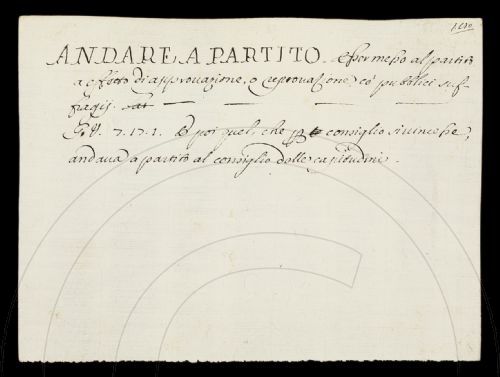 ANDARE A PARTITO. Esser messo al partito
a effetto di approuazione, o reprouazione co' pubblici suf-
fragij. Lat.
G.V. 7.17.1. E poi quel, che consiglio si uincesse,
andaua a partito al consiglio delle capitudini.